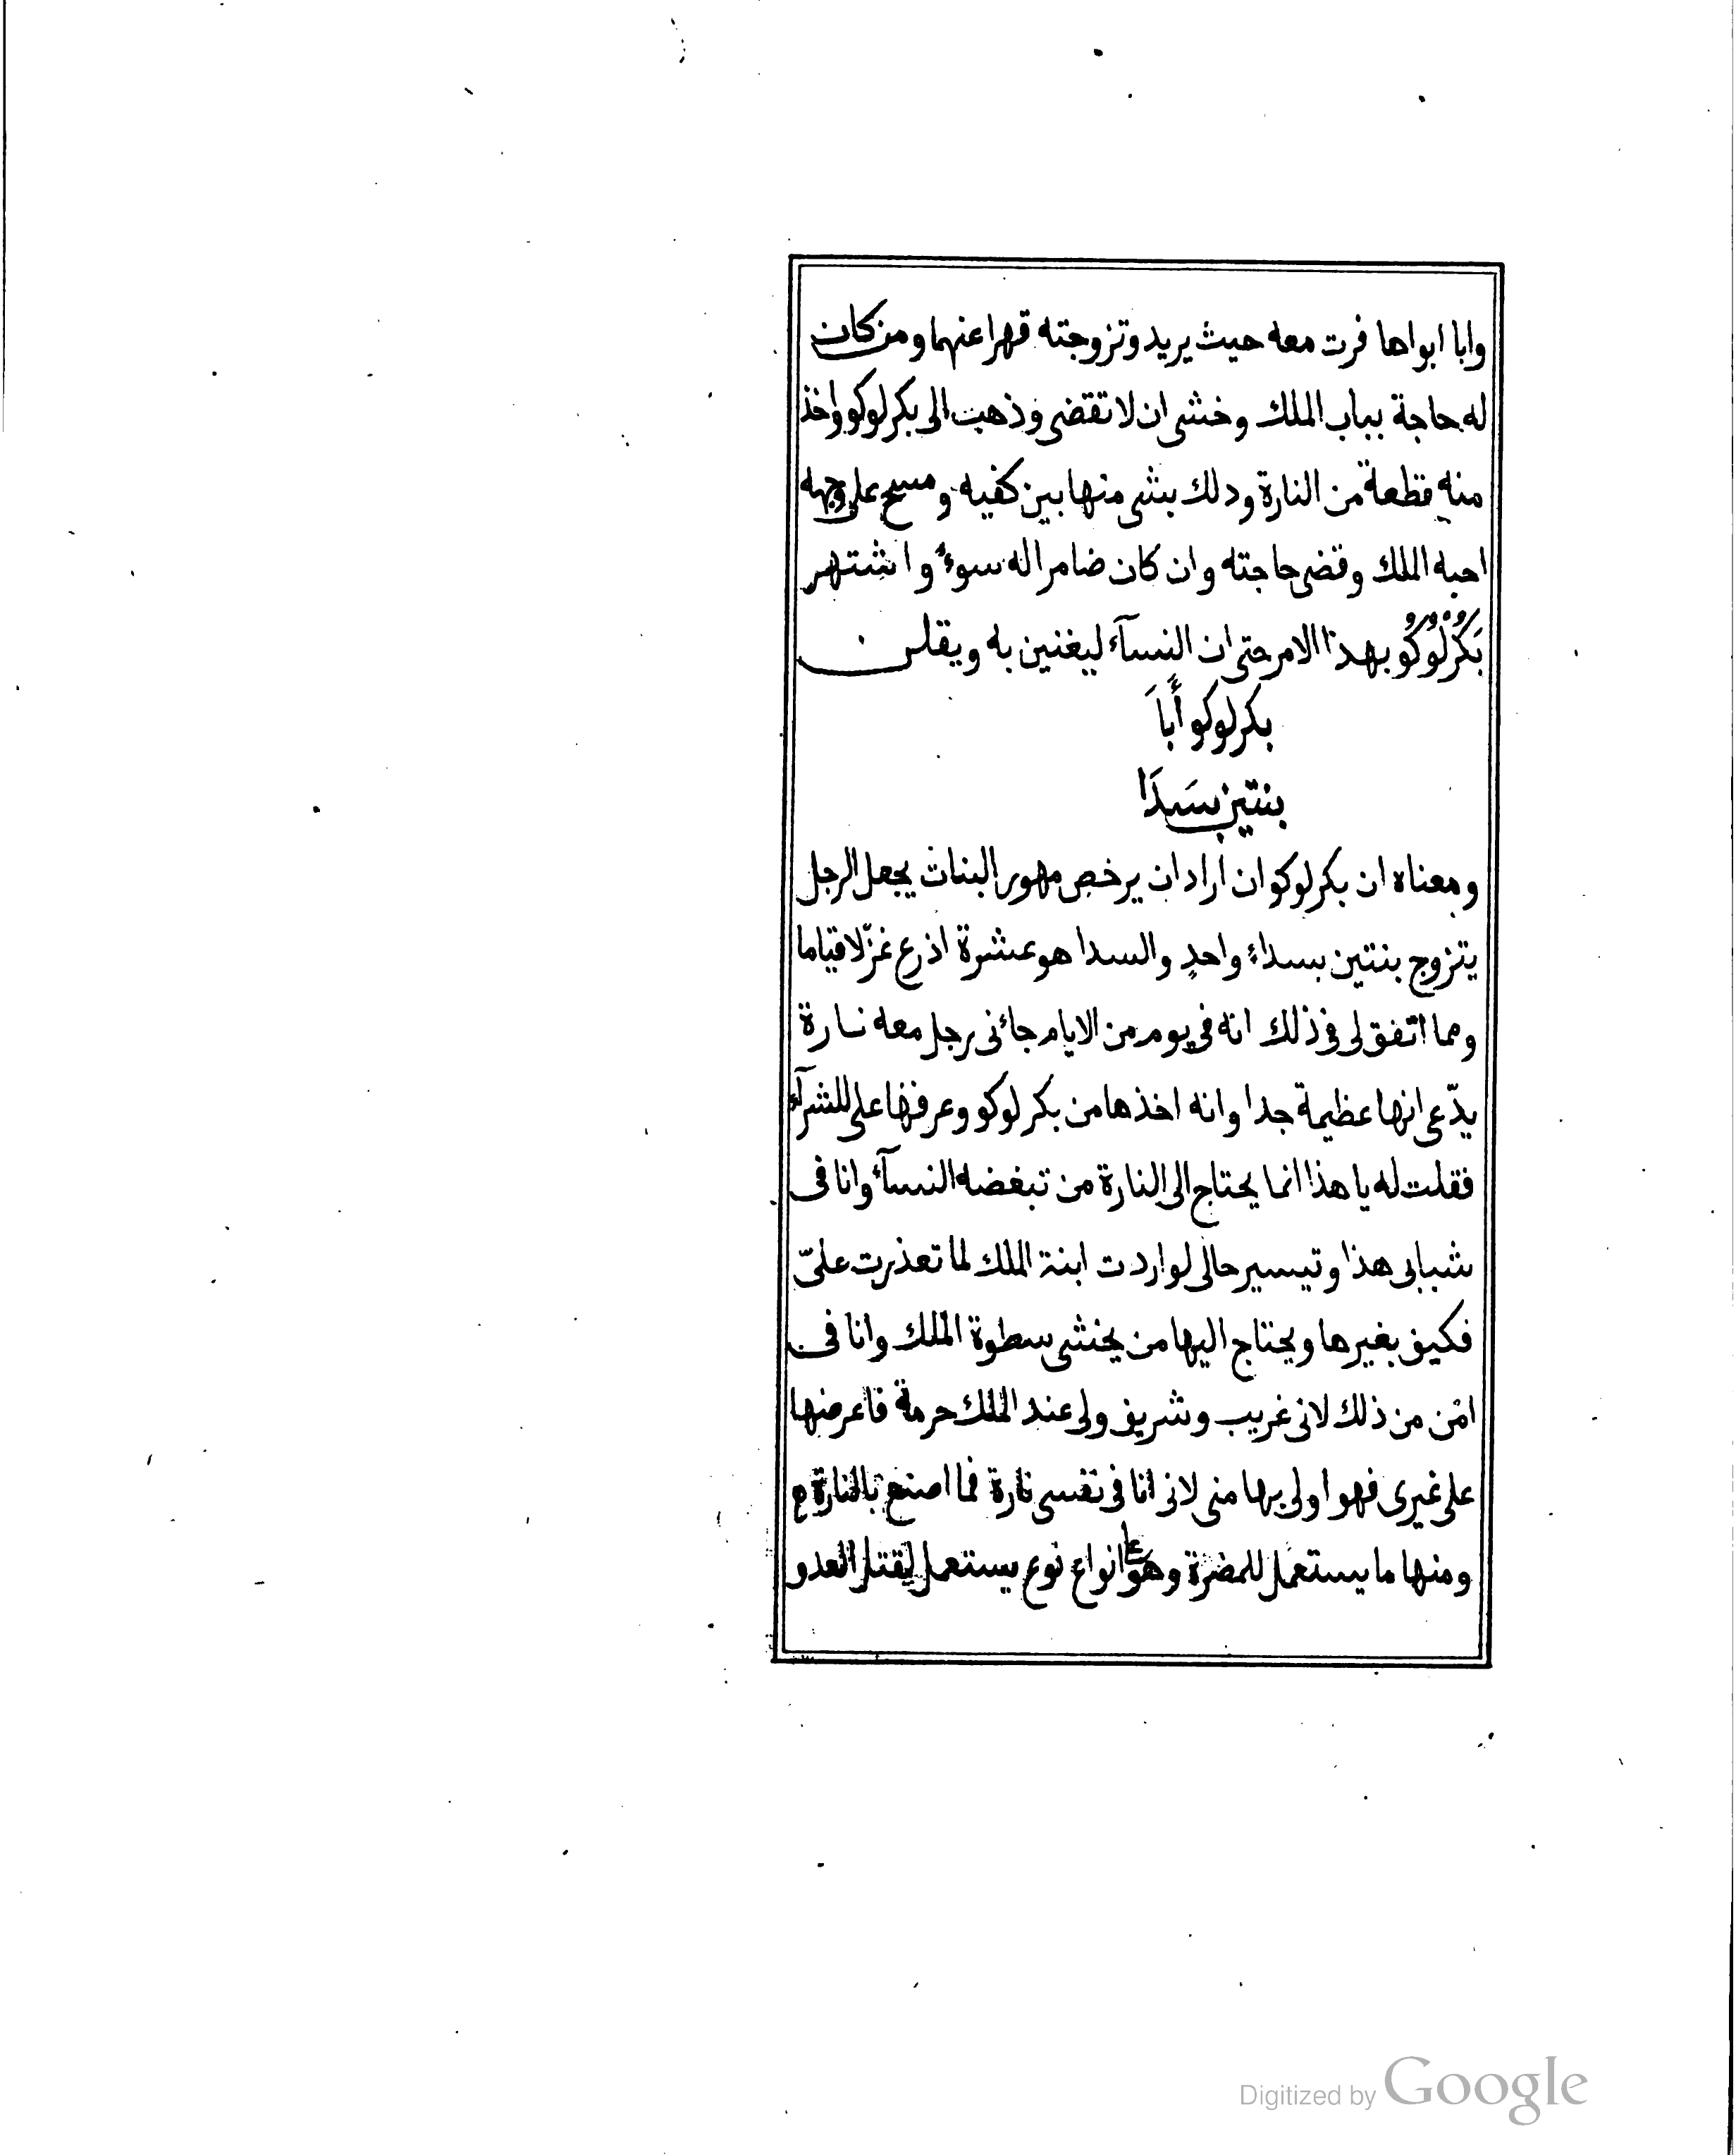 وابا ابواها فرت معه حيث يريد وتزوجته قهرا عنهما ومن كان
له حاجة بباب الملك وخشى ان لا تقتضى وذهب الى بكرلوكو واخذ
منه قطعة من النارة ودلك بشى منها بين كفيه ومسح على وجهه
احبه الملك وقضى حاجته وان كان ضامرا له سوءً واشتهر
بَكُرْلُوكُو بهذا الامر حتى ان النسآء ليغنين به ويقلن
بكرلوكو أَباَ
بنتين بسَدَا
ومعناه ان بكرلوكو ان اراد ان يرخص مهور البنات يجعل الرجل
يتزوج بنتين بسداءٍ واحدٍ والسدا هو عشرة اذرع غزّلا قياما
ومما اتفق لى فى ذلك انه فى يوم من الايام جائنى رجل معه نارة
يدّعى انها عظيمة جدا وانه اخذها من بكرلوكو وعرضها على للشرآء
فقلت له يا هذا انما يحتاج الى النارة من تبغضه النسآء وانا فى
شبابى هذا وتيسير حالى لو اردت ابنة الملك لما تعذرت علىّ
فكيف بغيرها ويحتاج اليها من يخشى سطوة الملك وانا فى
امن من ذلك لانى غريب وشريف ولى عند الملك حرمة فاعرضها
على غيرى فهو اولى بها منى لانى انا فى نفسى نارة فما اصنع بالنارة
ومنها ما يستعمل للمضرة وهو على انواع نوع يستعمل لقتل العدو
Digitized by Google